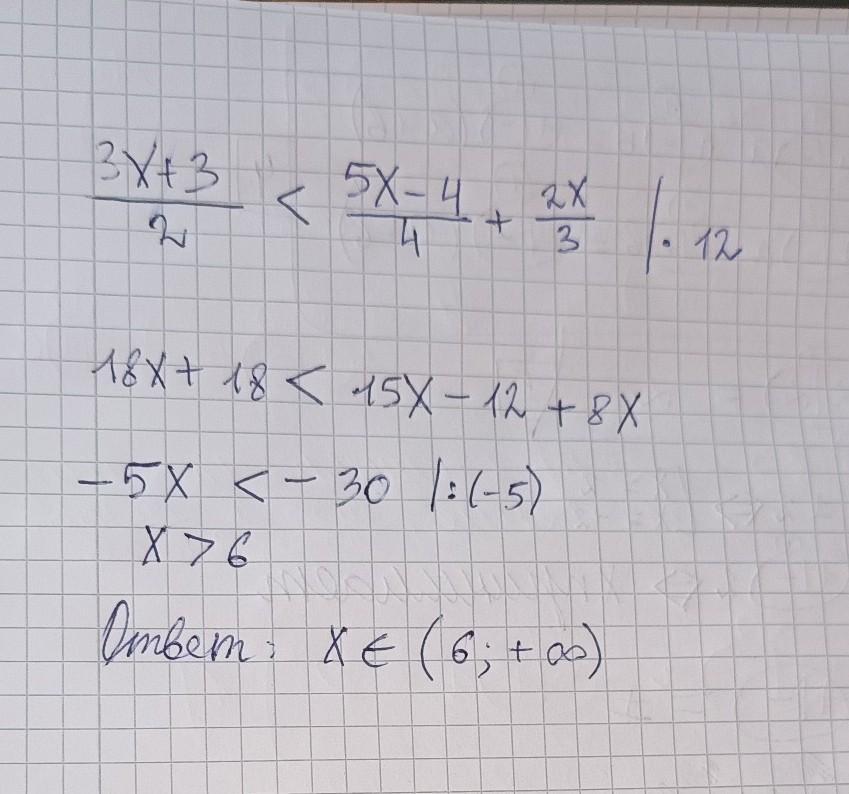 (3x+3)/2 < (5x-4)/4 + 2x/3 | · 12
18x + 18 < 15x - 12 + 8x
-5x < -30 | : (-5)
x > 6
Ответ: x ∈ (6; +∞)